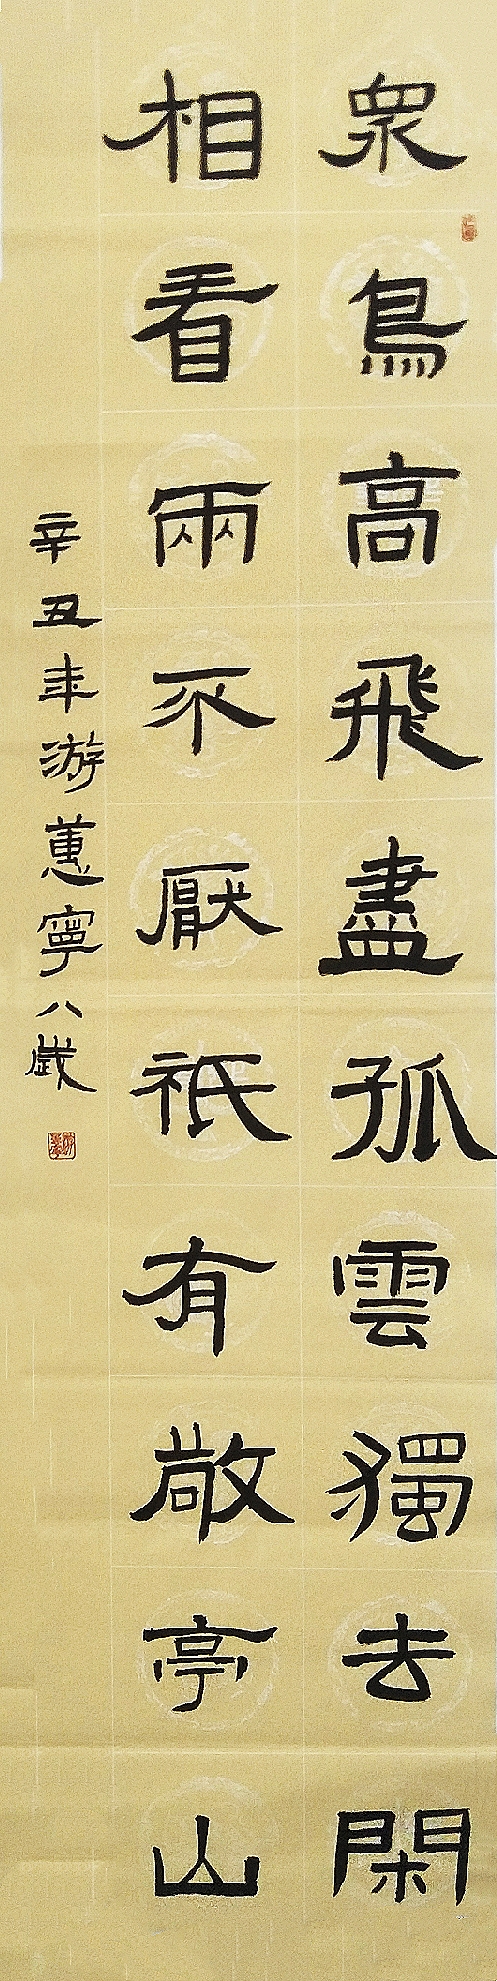 眾鳥高飛盡孤雲獨去閑
相看兩不厭祗有敬亭山
辛丑年游蕙寧八歲